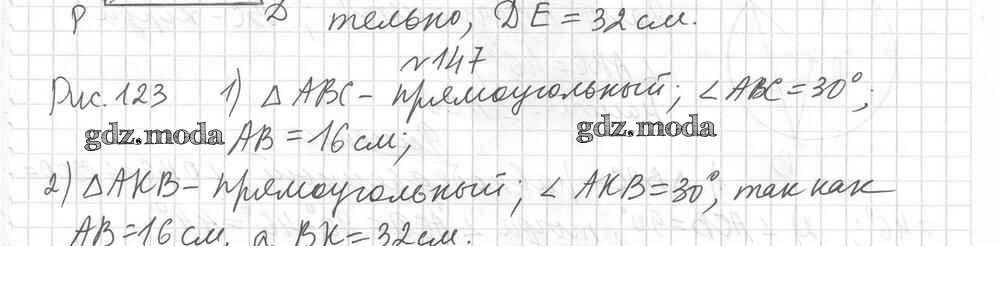 P D тельно, DE = 32 см.
№147
Рис. 123 1) △ ABC - прямоугольный; ∠ABC = 30°;
gdz.moda AB = 16 см; gdz.moda
2) △AKB - прямоугольный; ∠ AKB = 30°, так как
AB = 16 см, а BK = 32 см.